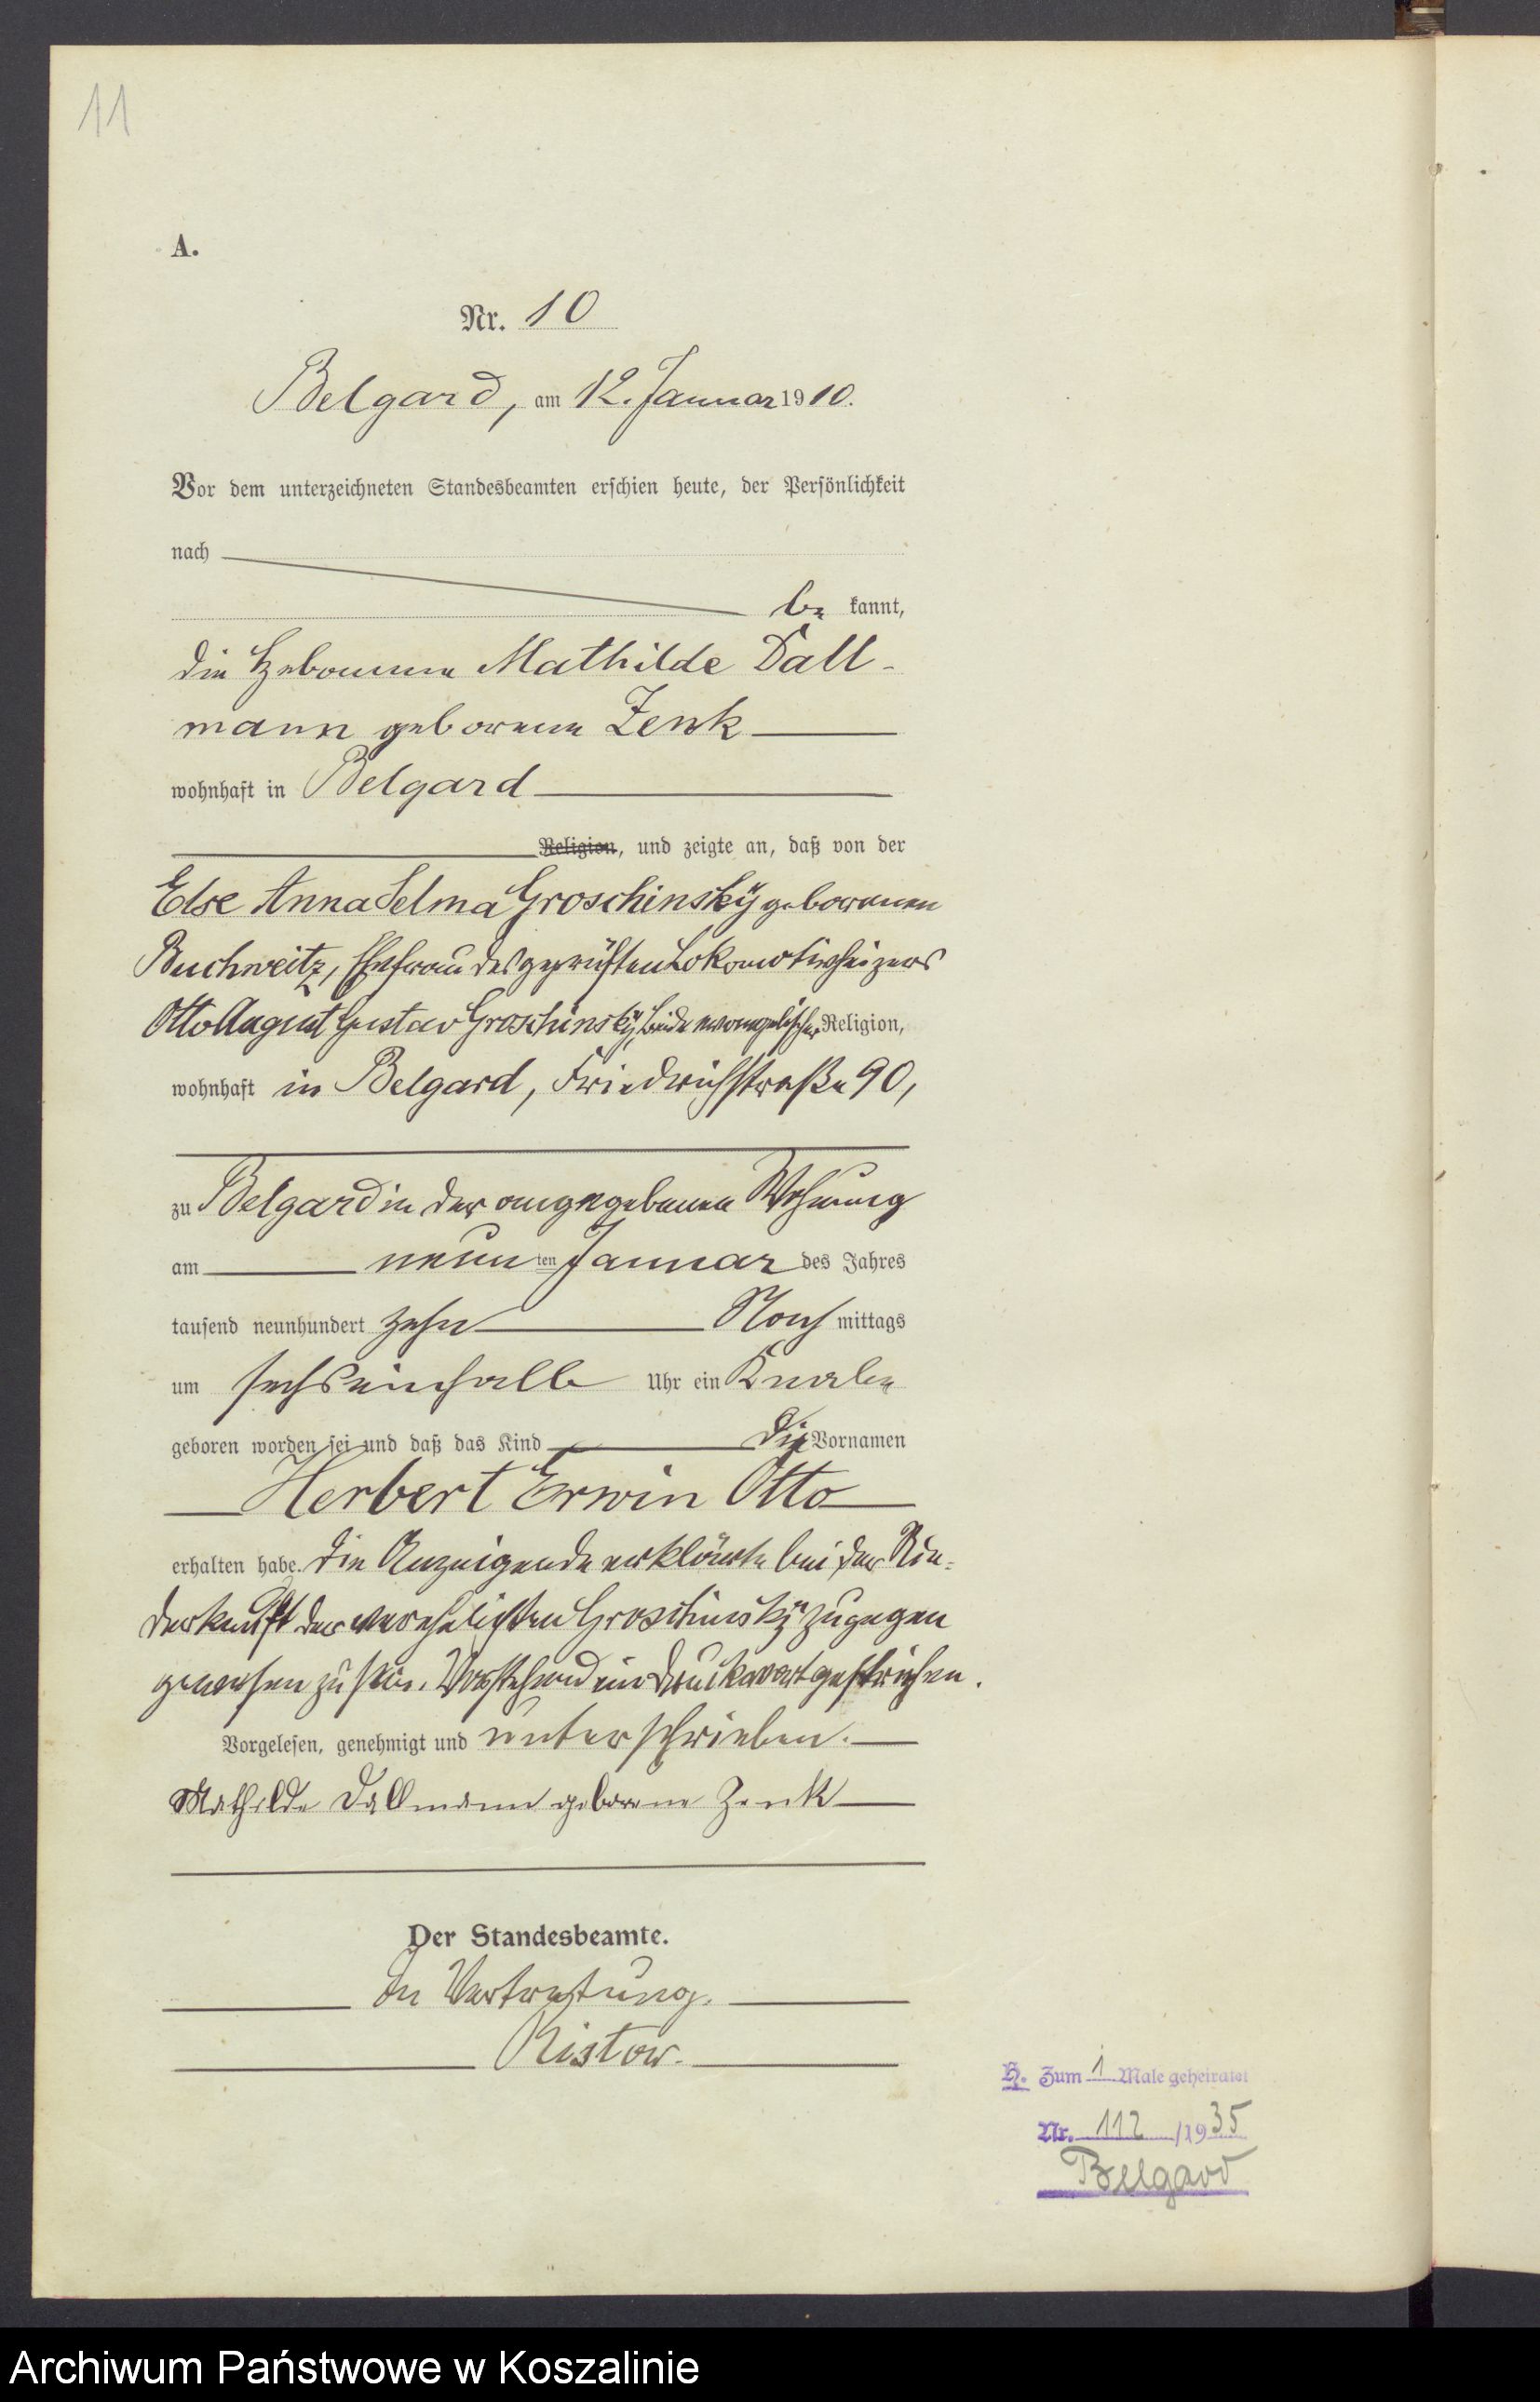 11
A.
Nr. 10
Belgard, am 12. Januar 1910.
Vor dem unterzeichneten Standesbeamten erschien heute, der Persönlichkeit
nach
be kannt,
die Hebamme Mathilde Dall-
mann geborene Zenk
wohnhaft in Belgard
Religion, und zeigte an, daß von der
Else Anna Selma Groschinsky geborenen
Buchweitz, Ehefrau des geprüften Lokomotivheizers
Otto August Gustav Groschinsky, beide evangelischer Religion,
wohnhaft in Belgard, Friedrichstraße 90,
zu Belgard in der angegebenen Wohnung
am neun ten Januar des Jahres
tausend neunhundert zehn Nach mittags
um sechseinhalb Uhr ein Knabe
geboren worden sei und daß das Kind die Vornamen
Herbert Erwin Otto
erhalten habe. Die Anzeigende erklärte bei der Nie-
derkunft der verehelichten Groschinsky zugegen
gewesen zu sein. Vorstehend ein Druckwort gestrichen.
Vorgelesen, genehmigt und unterschrieben.
Mathilde Dallmann geborene Zenk
Der Standesbeamte.
In Vertretung.
Ristow.
H. Zum 1 Male geheiratet
Nr. 112 /1935
Belgard
Archiwum Państwowe w Koszalinie